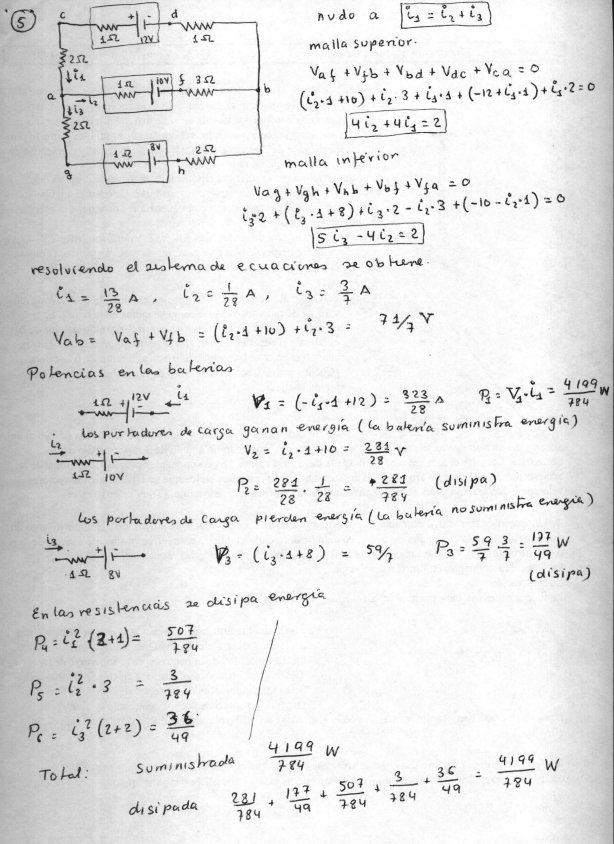 5
c + - d
1Ω 12V 1Ω
2Ω
i₁
a i₂ 1Ω 10V f 3Ω b
i₃
2Ω
1Ω 8V 2Ω
g h
nudo a i₁ = i₂ + i₃
malla superior.
Vaf + Vfb + Vbd + Vdc + Vca = 0
(i₂·1+10) + i₂·3 + i₁·1 + (-12+i₁·1) + i₁·2 = 0
4i₂ + 4i₁ = 2
malla inferior
Vag + Vgh + Vhb + Vbf + Vfa = 0
i₃·2 + (i₃·1+8) + i₃·2 - i₂·3 + (-10 - i₂·1) = 0
5i₃ - 4i₂ = 2
resolviendo el sistema de ecuaciones se obtiene.
i₁ = 13/28 A, i₂ = 1/28 A, i₃ = 3/7 A
Vab = Vaf + Vfb = (i₂·1+10) + i₂·3 = 71/7 V
Potencias en las baterias
1Ω + 12V - i₁ V₁ = (-i₁·1+12) = 323/28 A P₁ = V₁·i₁ = 4199/784 W
Los portadores de carga ganan energía (la batería suministra energía)
i₂ + - 1Ω 10V V₂ = i₂·1+10 = 281/28 V
P₂ = 281/28 · 1/28 = 281/784 (disipa)
Los portadores de carga pierden energía (la batería no suministra energia)
i₃ + - 1Ω 8V V₃ = (i₃·1+8) = 59/7 P₃ = 59/7 3/7 = 177/49 W
(disipa)
En las resistencias se disipa energia
P₄ = i₁²·(2+1) = 507/784
P₅ = i₂²·3 = 3/784
P₆ = i₃²(2+2) = 36/49
Total: suministrada 4199/784 W
disipada 281/784 + 177/49 + 507/784 + 3/784 + 36/49 = 4199/784 W